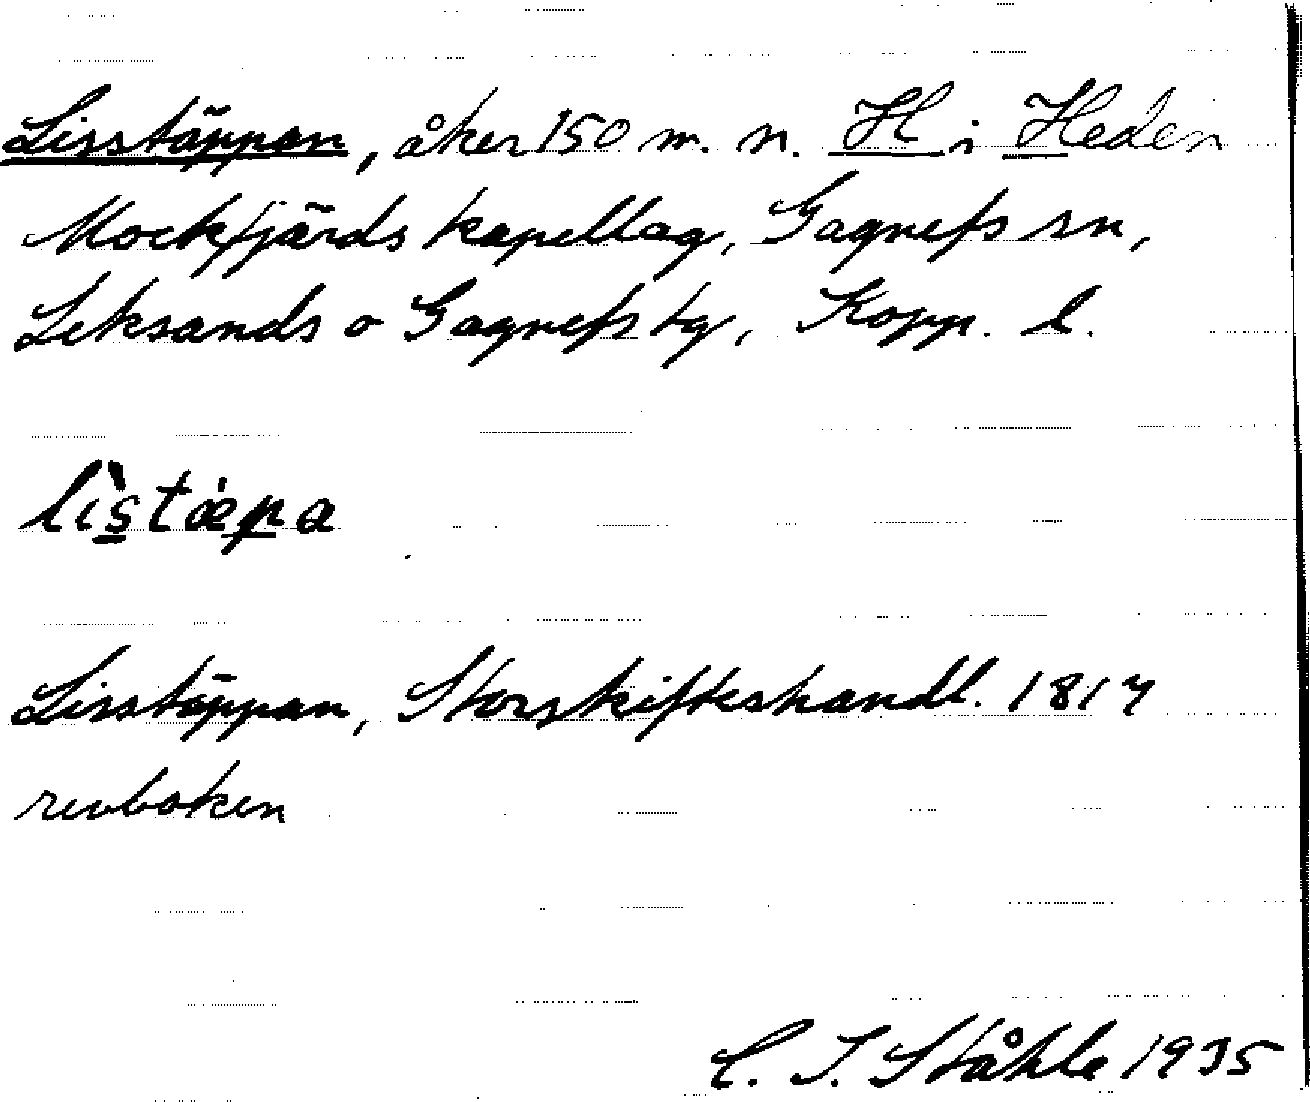 Lisstäppan, åker 150 m. n. H i Heden
Mockfjärds kapellag, Gagnefs sn,
Leksands o Gagnefs tg, Kopp. l.
lìstæ̀pa
Lisstäppan, Storskifteshandl. 1817
revboken
C. I. Ståhle 1935